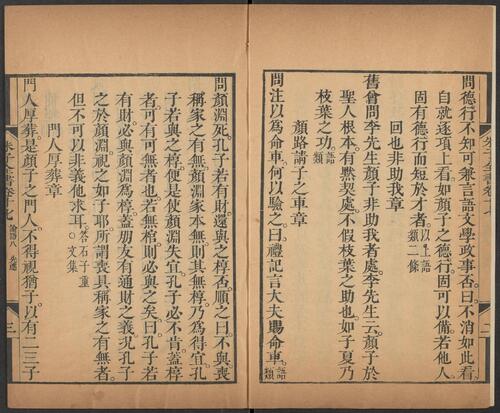 問德行不知可兼言語文學政事否曰不消如此看
自就逐項上看如顏子之德行固可以備若他人
固有德行而短於才者以上語類二條
回也非助我章
舊曾問李先生顏子非助我者處李先生云顏子於
聖人根本有默契處不假枝葉之助也如子夏乃
枝葉之功語類
顏路請子之車章
問注以為命車何以驗之曰禮記言大夫賜命車語類
問顏淵死孔子若有財還與之椁否順之曰不與喪
稱家之有無顏淵家本無則其無椁乃為得宜孔
子若與之椁便是使顏淵失宜孔子必不肯蓋椁
者可有可無者也若無棺則必與之矣曰孔子若
有財必與顏淵為椁蓋朋友有通財之義況孔子
之於顏淵視之如子耶所謂喪具稱家之有無者
但不可以非義他求耳答石子重○文集
門人厚葬章
門人厚葬是顏子之門人不得視猶子以有二三子
朱子全書卷十七 論語八 先進 三